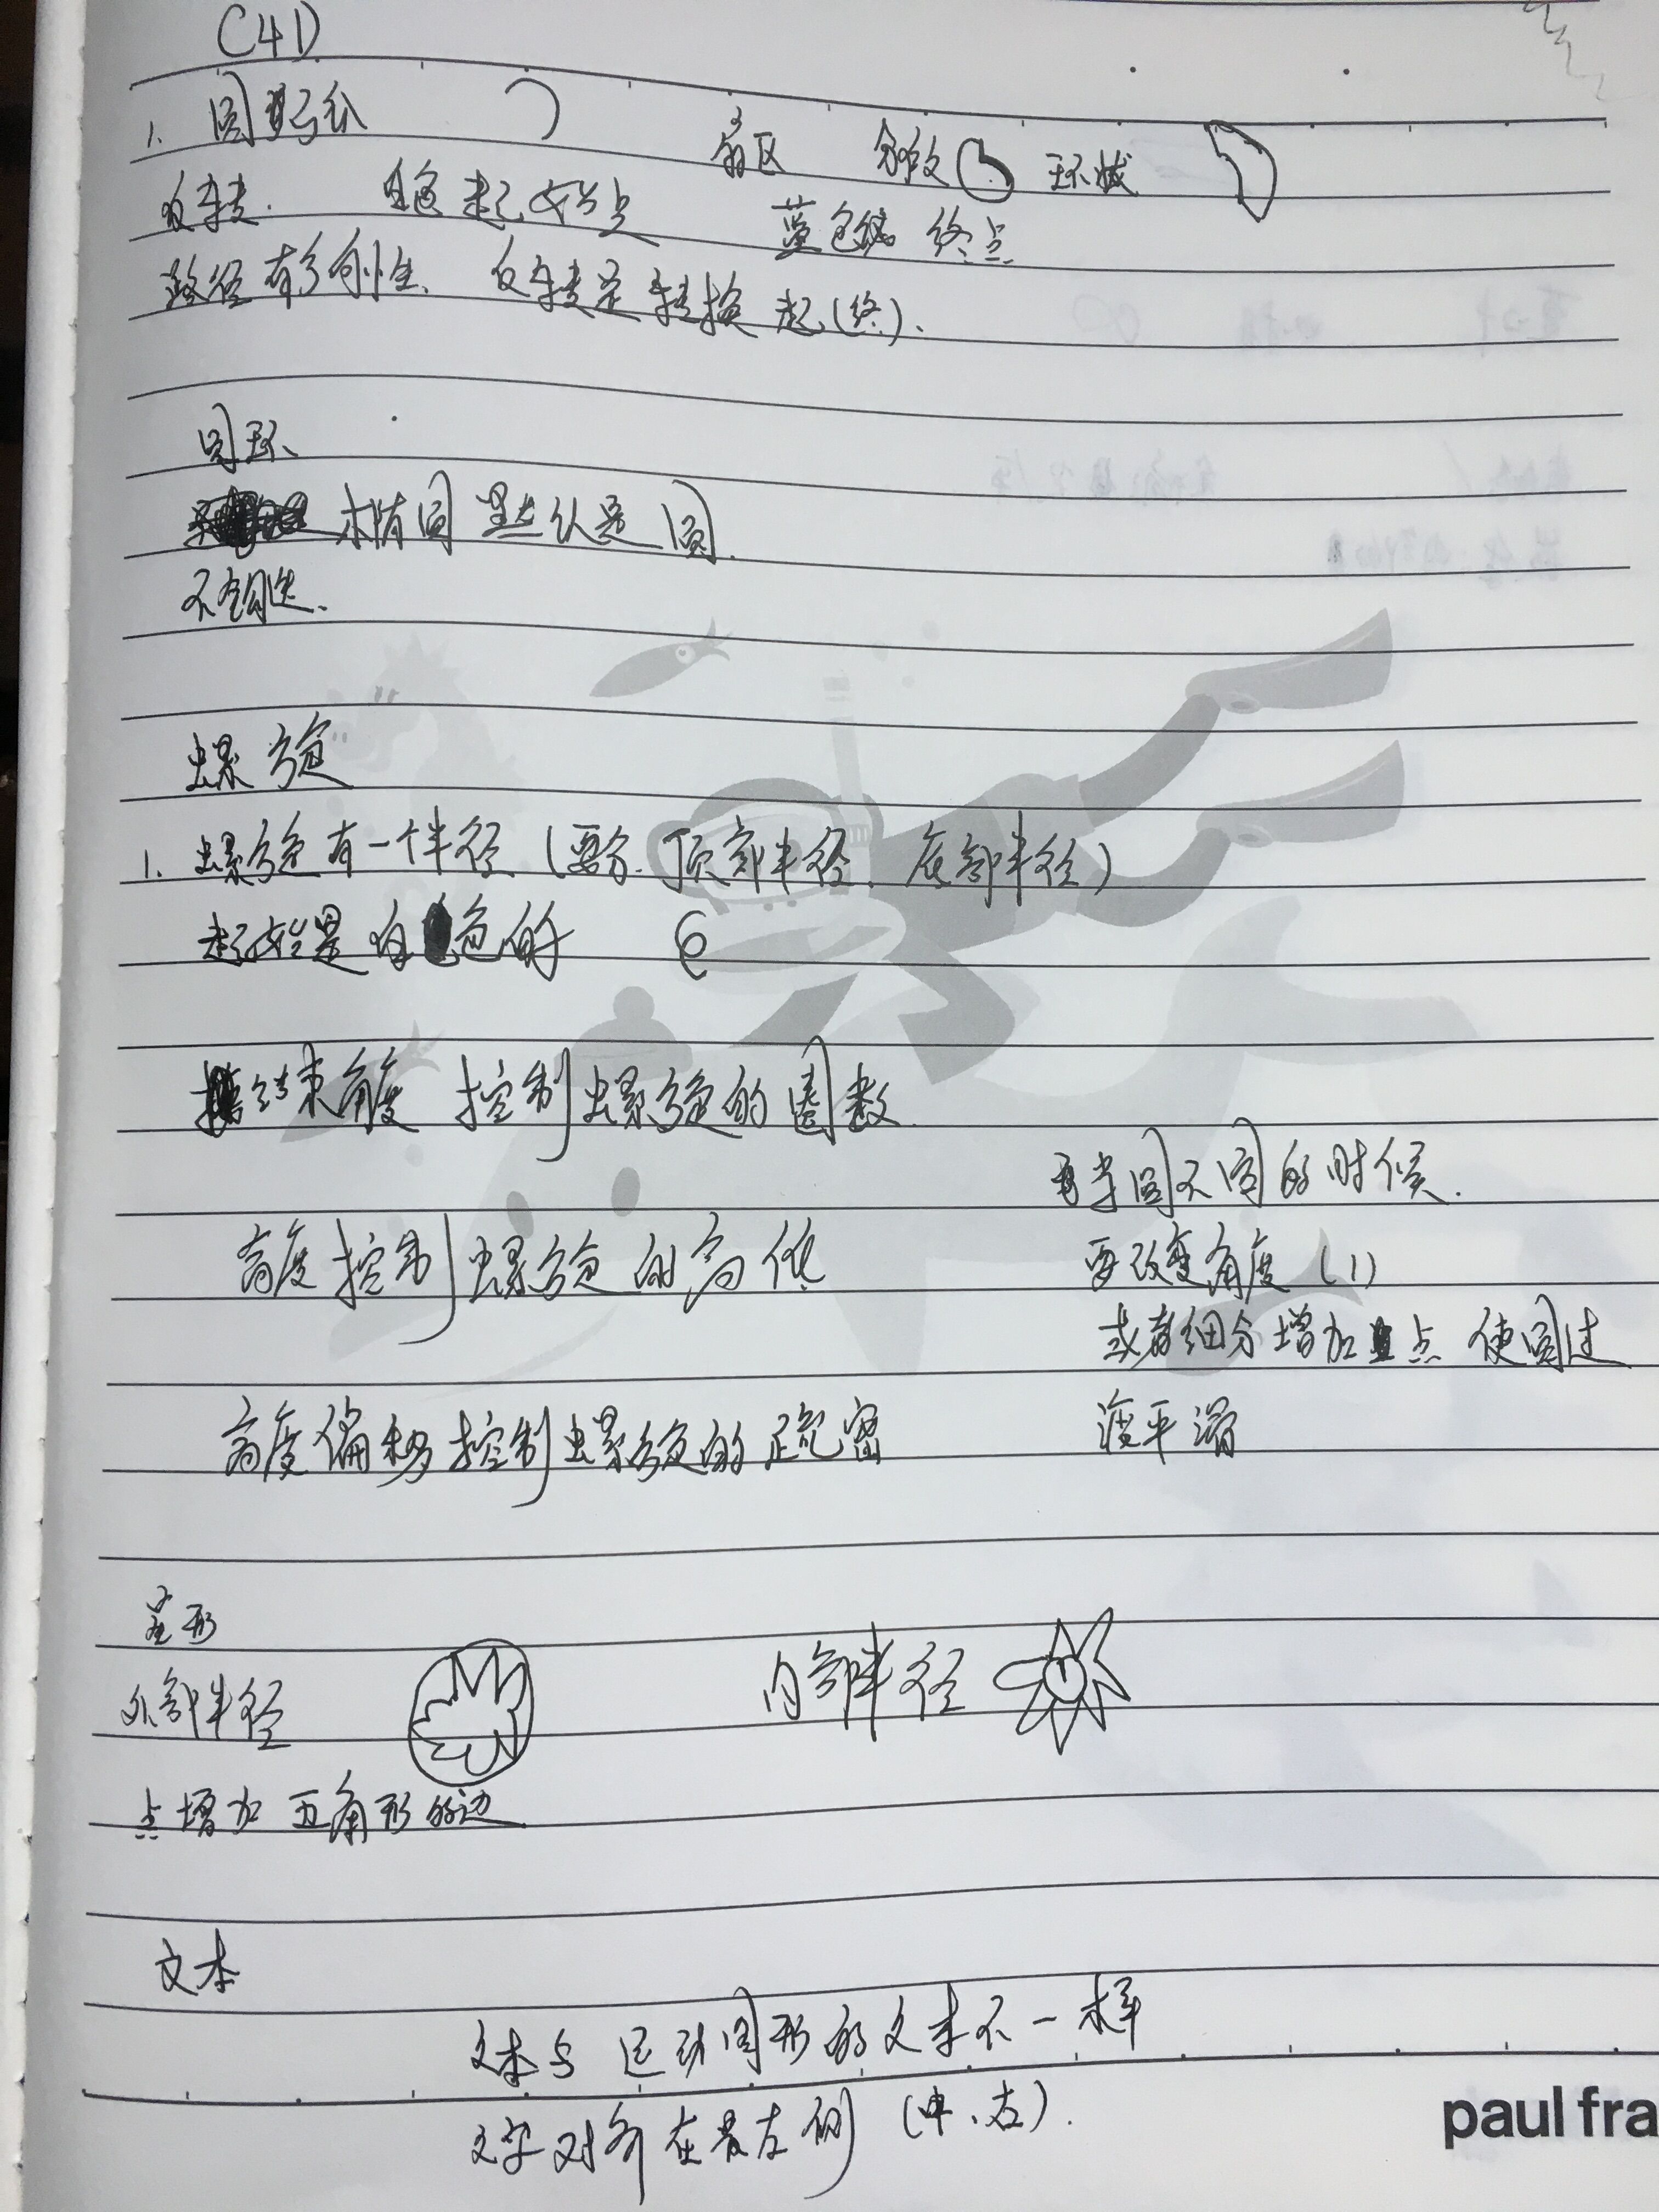 C4D
1. 圆弧 扇区 分段 环状
反转. 白色 起始点 蓝色 终点
路径有方向性. 反转是转换 起(终).
圆环
椭圆 默认是圆.
不勾选.
螺旋
1. 螺旋有一个半径(要分.顶部半径.底部半径)
起始是白色的
结束角度 控制螺旋的圈数
当圆不圆的时候.
高度控制螺旋的高低
要改变角度(1)
或者细分增加点 使圆过
高度偏移控制螺旋的疏密
渡平滑
星形
外部半径 内部半径
点增加 五角形的边
文本
文本与 运动图形的文本不一样
文字对齐在最左侧(中、右).
paul fra